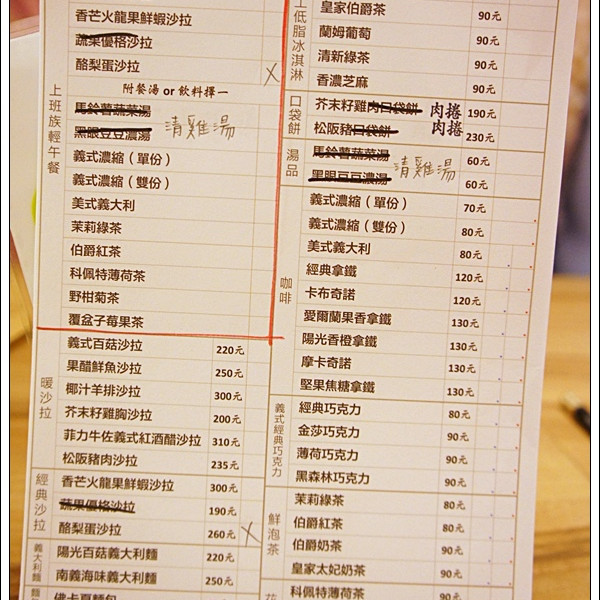 上班族輕午餐
香芒火龍果鮮蝦沙拉
蔬果優格沙拉
酪梨蛋沙拉 X
附餐湯 or 飲料擇一
馬鈴薯蔬菜湯
黑眼豆豆濃湯 清雞湯
義式濃縮（單份）
義式濃縮（雙份）
美式義大利
茉莉綠茶
伯爵紅茶
科佩特薄荷茶
野柑菊茶
覆盆子莓果茶
暖沙拉
義式百菇沙拉 220元
果醋鮮魚沙拉 250元
椰汁羊排沙拉 300元
芥末籽雞胸沙拉 200元
菲力牛佐義式紅酒醋沙拉 310元
松阪豬肉沙拉 235元
經典沙拉
香芒火龍果鮮蝦沙拉 300元
蔬果優格沙拉 190元
酪梨蛋沙拉 260元 X
義大利麵
陽光百菇義大利麵 220元
南義海味義大利麵 250元
佛卡夏麵包
工低脂冰淇淋
皇家伯爵茶 90元
蘭姆葡萄 90元
清新綠茶 90元
香濃芝麻 90元
口袋餅
芥末籽雞肉口袋餅 肉捲 190元
松阪豬口袋餅 肉捲 230元
湯品
馬鈴薯蔬菜湯 60元
黑眼豆豆濃湯 清雞湯 60元
咖啡
義式濃縮（單份） 70元
義式濃縮（雙份） 80元
美式義大利 80元
經典拿鐵 120元
卡布奇諾 120元
愛爾蘭果香拿鐵 130元
陽光香橙拿鐵 130元
摩卡奇諾 130元
堅果焦糖拿鐵 130元
義式經典巧克力
經典巧克力 80元
金莎巧克力 90元
薄荷巧克力 90元
黑森林巧克力 90元
鮮泡茶
茉莉綠茶 80元
伯爵紅茶 80元
伯爵奶茶 90元
皇家太妃奶茶 90元
科佩特薄荷茶 90元